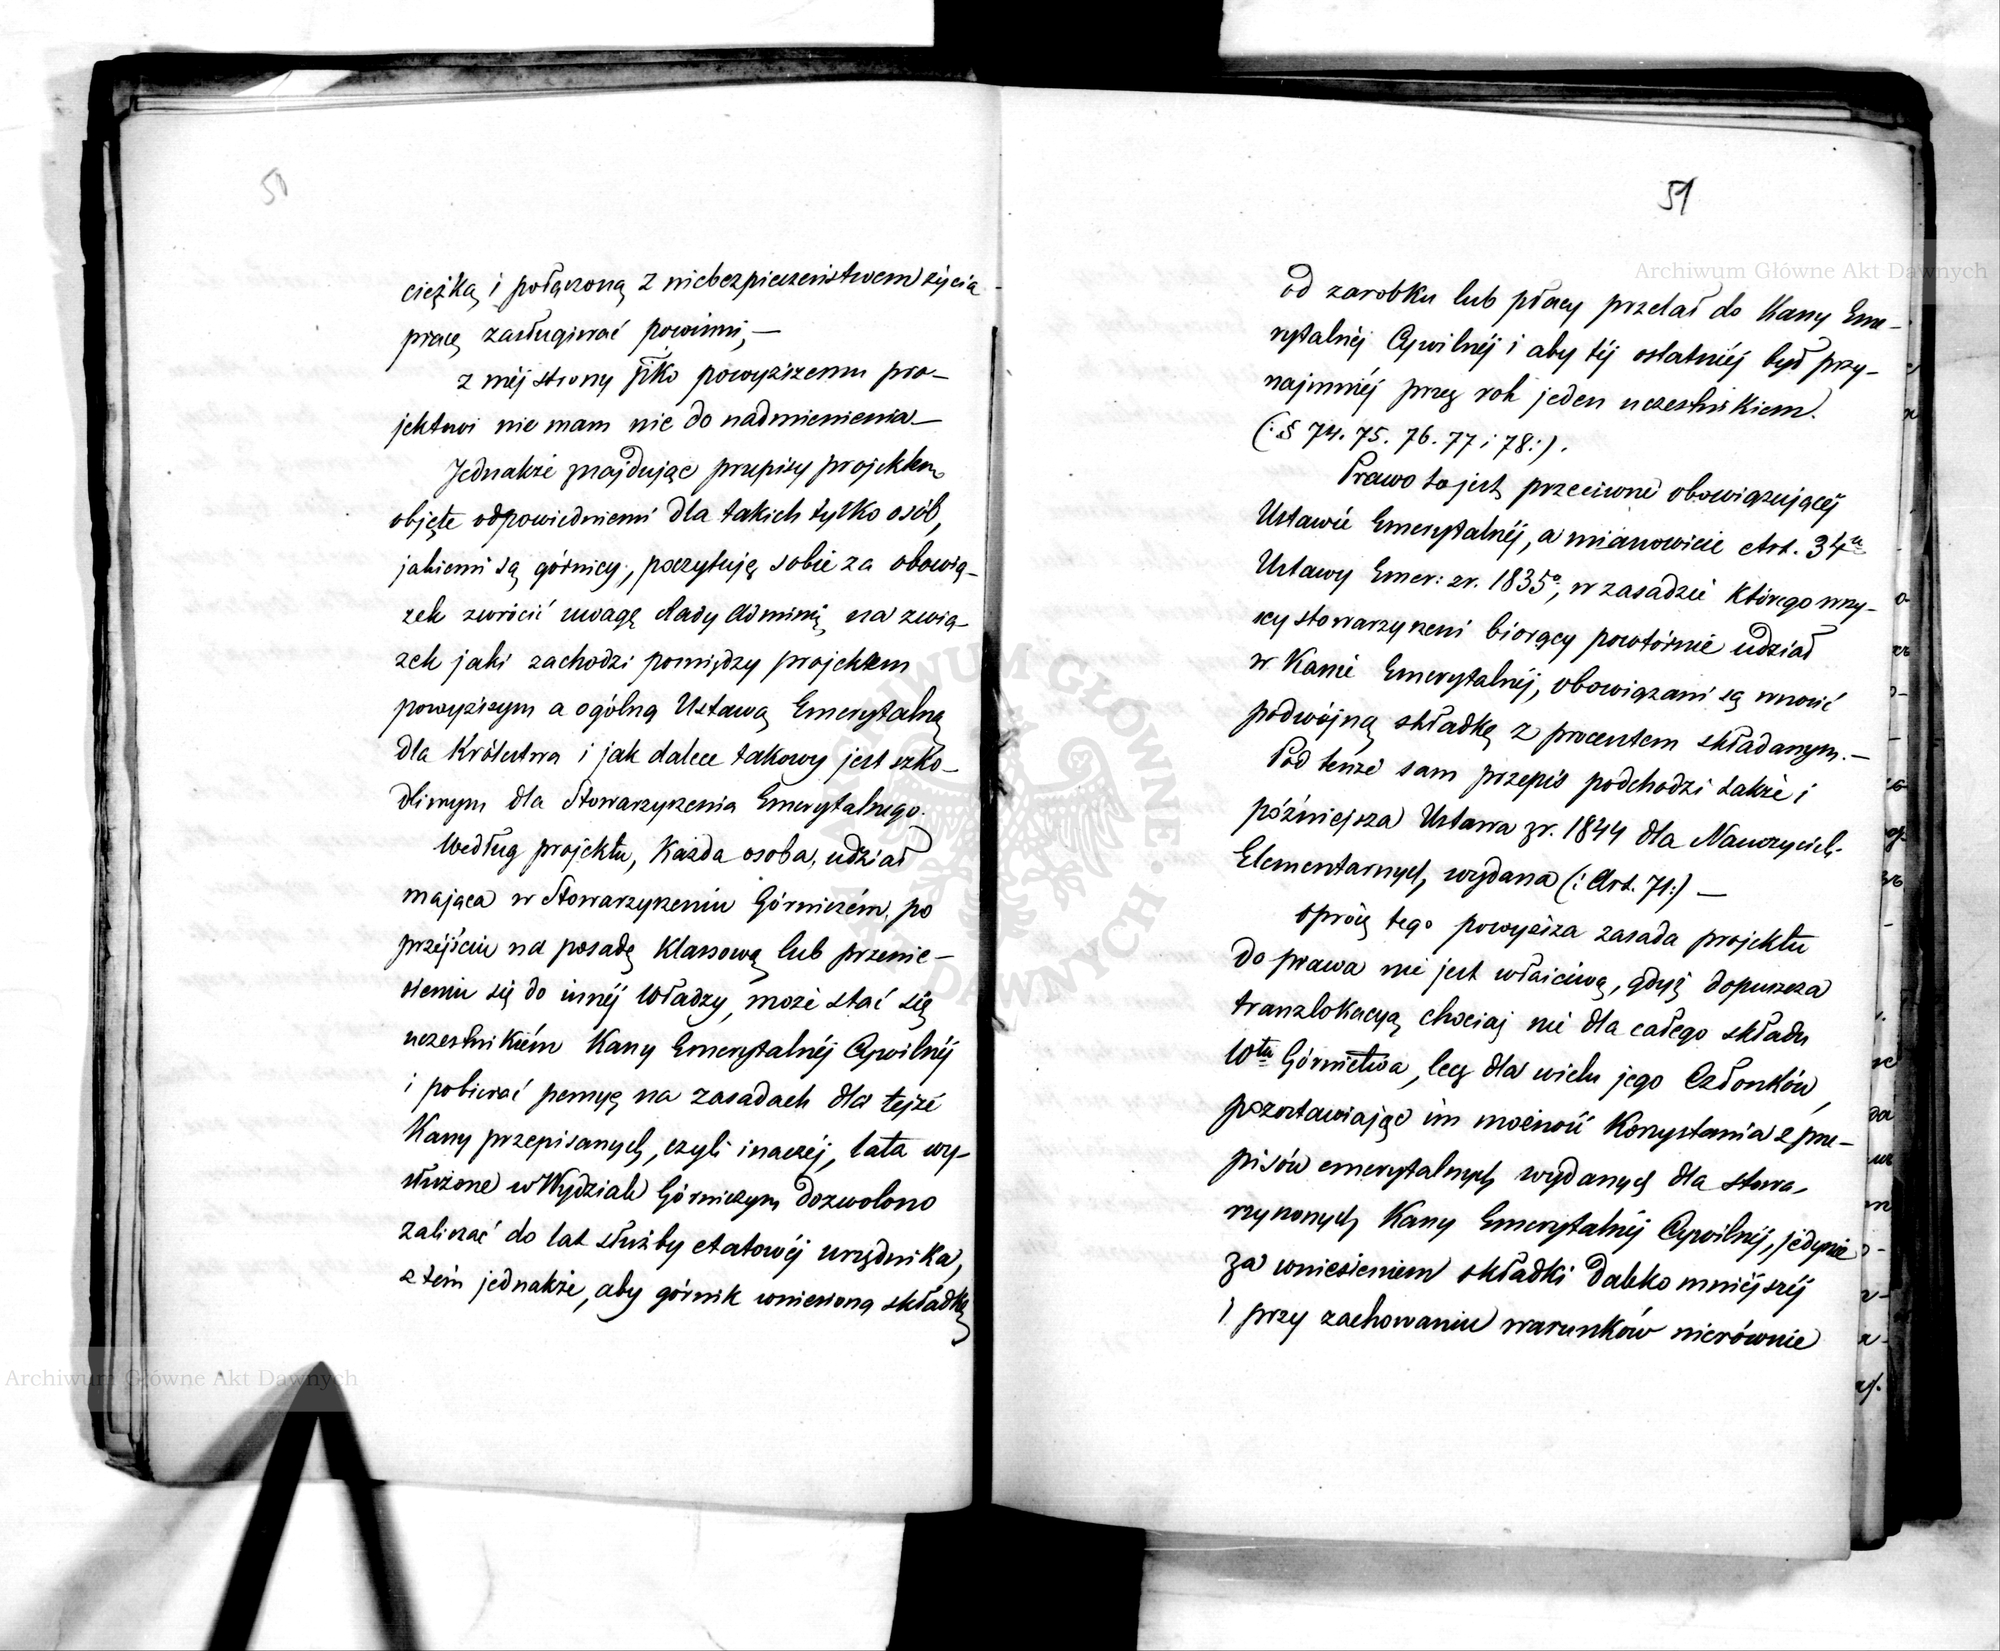 50
ciężką i połączoną z niebezpieczeństwem życia
pracę zasługiwać powinni, —
z mej strony p̃ko powyższemu pro-
jektowi nie mam nic do nadmienienia —
Jednakże znajdując przepisy projektem
objęte odpowiedniemi dla takich tylko osób,
jakiemi są górnicy, poczytuję sobie za obowią-
zek zwrócić uwagę Rady Adminię na zwią-
zek jaki zachodzi pomiędzy projektem
powyższym a ogólną Ustawą Emerytalną
dla Królestwa i jak dalece takowy jest szko-
dliwym dla Stowarzyszenia Emerytalnego.
Według projektu, każda osoba, udział
mająca w Stowarzyszeniu Górniczém, po
przejściu na posadę klassową lub przenie-
sieniu się do innéj Władzy, może stać się
uczestnikiém Kassy Emerytalnéj Cywilnéj
i pobierać pensyę na zasadach dla tejże
Kassy przepisanych, czyli inaczéj, lata wy-
służone w Wydziale Górniczym dozwolono
zaliczać do lat służby etatowéj urzędnika,
z tém jednakże, aby górnik wniesioną składkę
51
od zarobku lub płacy przelał do Kassy Eme-
rytalnéj Cywilnéj i aby téj ostatniéj był przy-
najmniéj przez rok jeden uczestnikiem.
(: § 74. 75. 76. 77 i 78 :).
Prawo to jest przeciwne obowiązującéj
Ustawie Emerytalnéj, a mianowicie Art. 34u
Ustawy Emer: z r. 1835o, w zasadzie którego wszy-
scy stowarzyszeni biorący powtórnie udział
w Kassie Emerytalnéj, obowiązani są wnosić
podwójną składkę z procentem składanym. —
Pod tenże sam przepis podchodzi także i
późniejsza Ustawa z r. 1844 dla Nauczycieli
Elementarnych, wydana (: Art. 71 :) —
Oprócz tego powyższa zasada projektu
do prawa nie jest właściwą, gdyż dopuszcza
tranzlokacyą chociaj nie dla całego składu
Włu Górnictwa, lecz dla wielu jego Członków,
pozostawiając im możność korzystania z prze-
pisów emerytalnych wydanych dla stowa-
rzyszonych Kassy Emerytalnéj Cywilnéj, jedynie
za wniesieniem składki daleko mniéjszéj
i przy zachowaniu warunków nierównie
Archiwum Główne Akt Dawnych
Archiwum Główne Akt Dawnych
ARCHIWUM GŁÓWNE AKT DAWNYCH